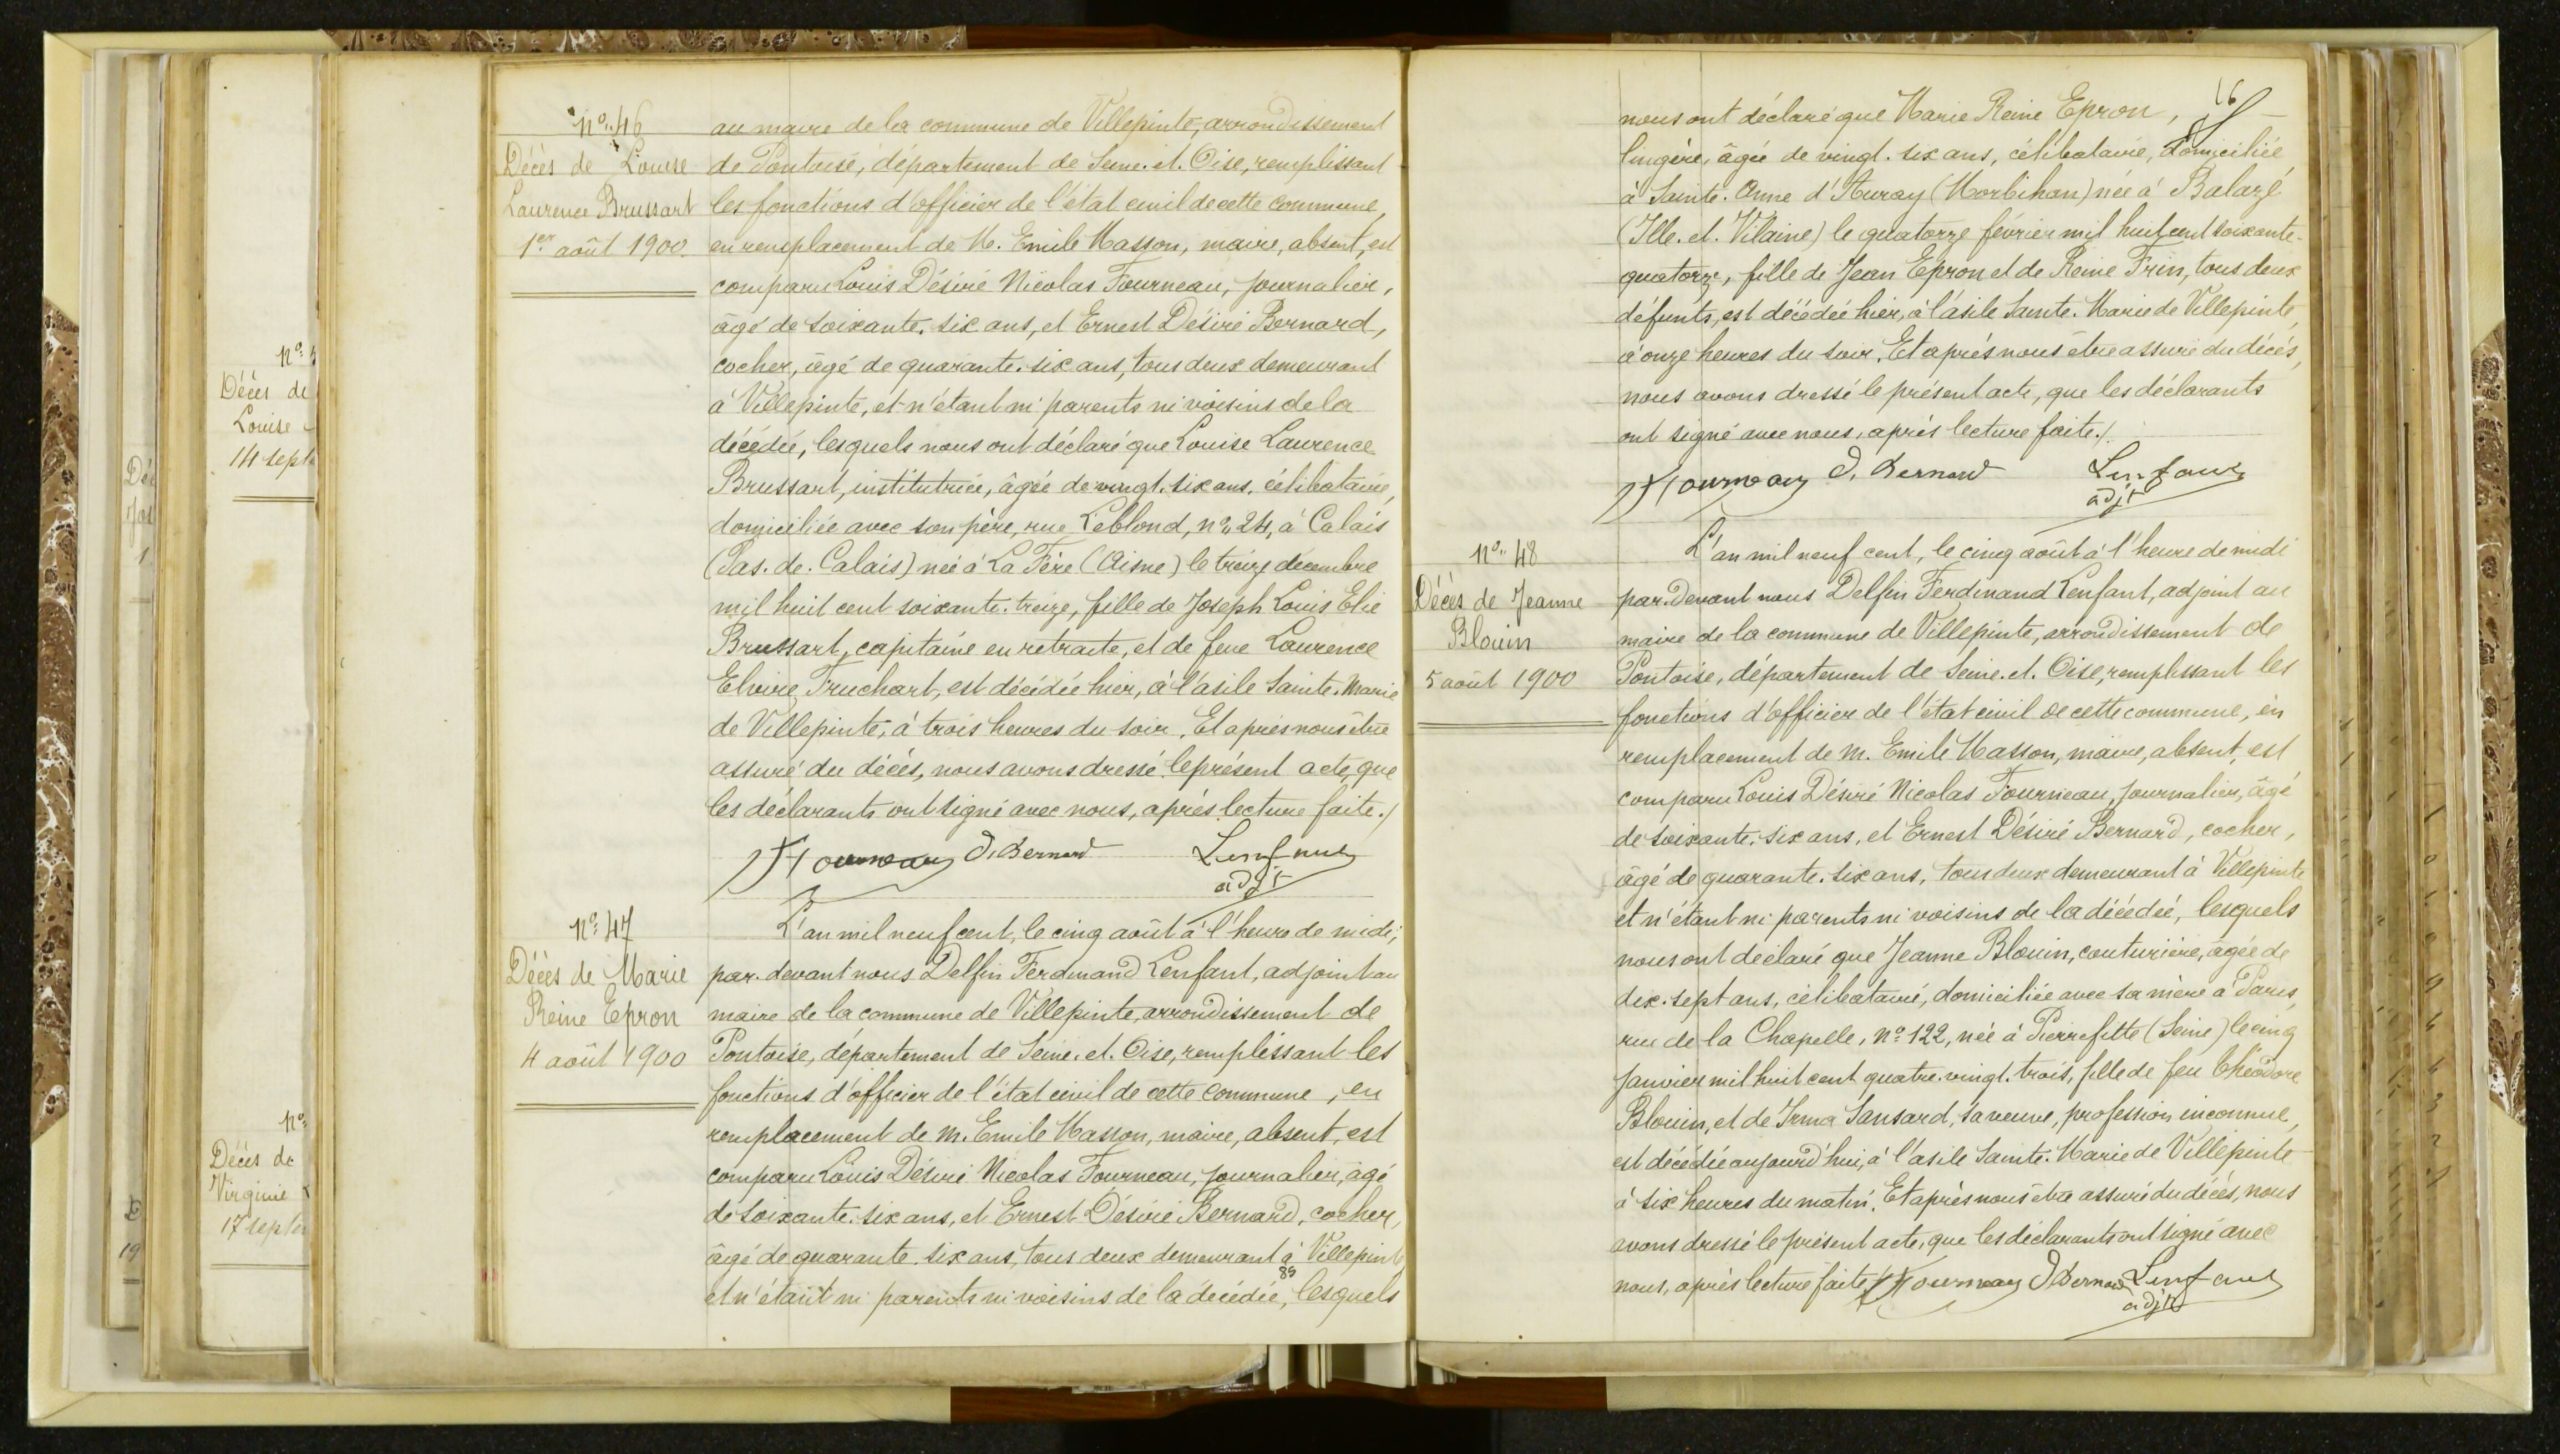 n°. 5
Décès de
Louise
14 sept
n°.
Décès de
Virginie
17 septe
19
n°. 46
Décès de Louise
Laurence Brussart
1er août 1900.
au maire de la commune de Villepinte, arrondissement
de Pontoise, département de Seine. et. Oise, remplissant
les fonctions d'officier de l'état civil de cette commune,
en remplacement de M. Emile Masson, maire, absent, est
comparu Louis Désiré Nicolas Fourneau, journalier,
âgé de soixante. six ans, et Ernest Désiré Bernard,
cocher, âgé de quarante. six ans, tous deux demeurant
à Villepinte, et n'étant ni parents ni voisins de la
décédée, lesquels nous ont déclaré que Louise Laurence
Brussart, institutrice, âgée de vingt. six ans, célibataire,
domiciliée avec son père, rue Leblond, n°. 24, à Calais
(Pas. de. Calais) née à La Fère (Aisne) le treize décembre
mil huit cent soixante. treize, fille de Joseph Louis Elie
Brussart, capitaine en retraite, et de feue Laurence
Elvire Truchart, est décédée hier, à l'asile Sainte. Marie
de Villepinte, à trois heures du soir. Et après nous être
assuré du décès, nous avons dressé le présent acte, que
les déclarants ont signé avec nous, après lecture faite./.
Fourneau D. Bernard Lenfant
adjt
n°. 47
Décès de Marie
Reine Epron
4 août 1900
L'an mil neuf cent, le cinq août à l'heure de midi,
par. devant nous Delfin Ferdinand Lenfant, adjoint au
maire de la commune de Villepinte, arrondissement de
Pontoise, département de Seine. et. Oise, remplissant les
fonctions d'officier de l'état civil de cette commune, en
remplacement de M. Emile Masson, maire, absent, est
comparu Louis Désiré Nicolas Fourneau, journalier, âgé
de soixante. six ans, et Ernest Désiré Bernard, cocher,
âgé de quarante. six ans, tous deux demeurant à Villepinte
85
et n'étant ni parents ni voisins de la décédée, lesquels
16
nous ont déclaré que Marie Reine Epron,
lingère, âgée de vingt. six ans, célibataire, domiciliée
à Sainte. Anne d'Auray (Morbihan) née à Balazé
(Ille. et. Vilaine) le quatorze février mil huit cent soixante-
quatorze, fille de Jean Epron et de Reine Frin, tous deux
défunts, est décédée hier, à l'asile Sainte. Marie de Villepinte,
à onze heures du soir. Et après nous être assuré du décès,
nous avons dressé le présent acte, que les déclarants
ont signé avec nous, après lecture faite./.
Fourneau D. Bernard Lenfant
adjt
n°. 48
Décès de Jeanne
Blouin
5 août 1900
L'an mil neuf cent, le cinq août à l'heure de midi
par. devant nous Delfin Ferdinand Lenfant, adjoint au
maire de la commune de Villepinte, arrondissement de
Pontoise, département de Seine. et. Oise, remplissant les
fonctions d'officier de l'état civil de cette commune, en
remplacement de M. Emile Masson, maire, absent, est
comparu Louis Désiré Nicolas Fourneau, journalier, âgé
de soixante. six ans, et Ernest Désiré Bernard, cocher,
âgé de quarante. six ans, tous deux demeurant à Villepinte
et n'étant ni parents ni voisins de la décédée, lesquels
nous ont déclaré que Jeanne Blouin, couturière, âgée de
dix. sept ans, célibataire, domiciliée avec sa mère à Paris,
rue de la Chapelle, n° 122, née à Pierrefitte (Seine) le cinq
janvier mil huit cent quatre. vingt. trois, fille de feu Théodore
Blouin, et de Irma Sansard, sa veuve, profession inconnue,
est décédée aujourd'hui, à l'asile Sainte. Marie de Villepinte
à six heures du matin. Et après nous être assuré du décès, nous
avons dressé le présent acte, que les déclarants ont signé avec
nous, après lecture faite./. Fourneau D. Bernard Lenfant
adjt